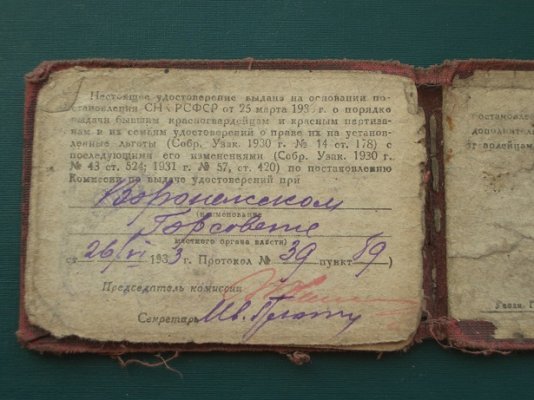 Настоящее удостоверение выдано на основании по-
становления СНК РСФСР от 25 марта 193 г. о порядке
выдачи бывшим красногвардейцам и красным партиза-
нам и их семьям удостоверений о праве их на установ-
ленные льготы (Собр. Узак. 1930 г. № 14 ст. 178) с
последующими его изменениями (Собр. Узак. 1930 г.
№ 43 ст. 524; 1931 г. № 57, ст. 420) по постановлению
Комиссии по выдаче удостоверений при
Воронежском
(наименование
Горсовете
местного органа власти)
26/VI 1933 г. Протокол № 39 пункт 59)
Председатель комиссии
Секретарь Ив.
становлен
дополнитель
гвардейцам